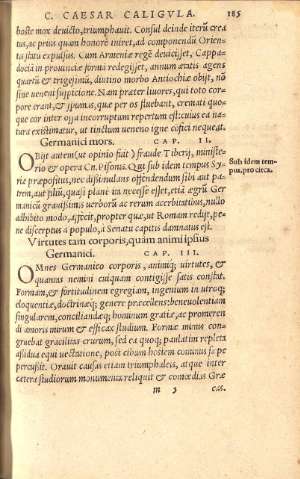 C. CAESAR CALIGVLA. 185
hoste mox deuicto, triumphauit. Consul deinde iterũ crea
tus, ac prius quam honorẽ iniret, ad componendũ Orien
tis statũ expulsus. Cum Armeniæ regẽ deuicisset, Cappa
dociã in prouinciæ formã redegisset, annum ætatis agens
quartũ & trigesimũ, diutino morbo Antiochiæ obijt, nõ
sine ueneni suspicione. Nam præter liuores, qui toto cor
pore erant, & spumas, quæ per os fluebant, cremati quo-
que cor inter ossa incorruptum repertum est: cuius ea na
tura existimatur, ut tinctum ueneno igne cõfici nequeat.
Germanici mors. CAP. II.
Obijt autem (ut opinio fuit) fraude Tiberij, ministe-
rio & opera Cn. Pisonis. Qui sub idem tempus Sy
riæ præpositus, nec dissimulans offendendum sibi aut pa
trem, aut filiũ, quasi plane ita necesse esset, etiã ægrũ Ger
manicũ grauissimis uerborũ ac rerum acerbitatibus, nullo
adhibito modo, affecit, propter quæ, ut Romam redijt, pe-
ne discerptus a populo, à Senatu capitis damnatus est.
Sub idem tem-
pus, pro circa.
Virtutes tam corporis, quàm animi ipsius
Germanici. CAP. III.
Omnes Germanico corporis, animiq; uirtutes, &
quantas nemini cuiquam contigisse satis constat.
Formam, & fortitudinem egregiam, ingenium in utroq;
eloquentiæ, doctrinæq; genere præcellens: beneuolentiam
singularem, conciliandæq; hominum gratiæ, ac promerẽdi
amoris mirum & efficax studium. Formæ minus con-
gruebat gracilitas crurum, sed ea quoq; paulatim repleta
assidua equi uectatione, post cibum hostem comminus sæpe
percußit. Orauit causas etiam triumphalis, atque inter
cætera studiorum monumenta reliquit & comœdias Græ
m 3 cas.